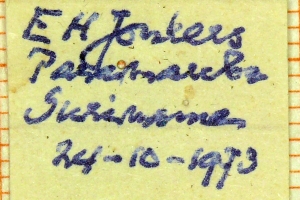 E H Jonkers
Paramaribo
Suriname
24-10-1973